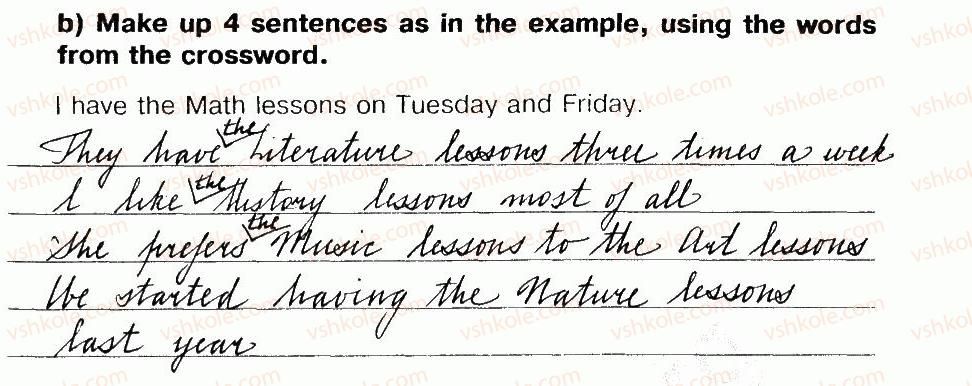 b) Make up 4 sentences as in the example, using the words
from the crossword.
I have the Math lessons on Tuesday and Friday.
They have the Literature lessons three times a week
I like the History lessons most of all
She prefers the Music lessons to the Art lessons
We started having the Nature lessons
last year